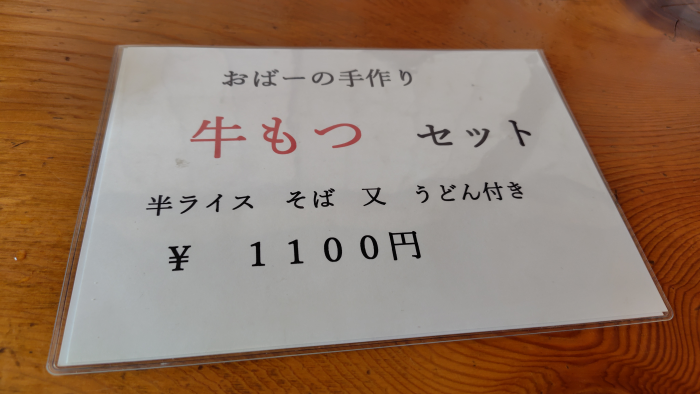 おばーの手作り
牛もつ　セット
半ライス　そば　又　うどん付き
¥　１１００円